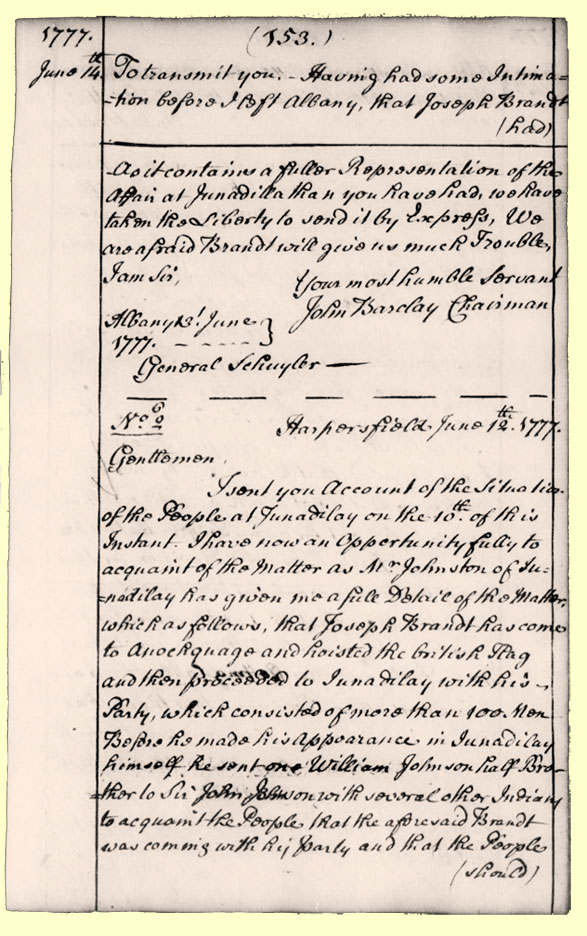 1777. (153.)
June 14.th To transmit you. – Having had some Intima=
=tion before I left Albany, that Joseph Brandt
(had)
As it contains a fuller Representation of the
Affair at Junadilla than you have had, we have
taken the Liberty to send it by Express, We
are afraid Brandt will give us much Trouble,
I am Sir,
Your most humble Servant
John Barclay Chairman
Albany 13.t June }
1777. - - - - -
General Schuyler —
No. 6
Harpersfield June 12.th 1777.
Gentlemen
I sent you Account of the Situation
of the People at Junadilay on the 10.th of this
Instant. I have now an Opportunity fully to
acquaint of the Matter as Mr Johnston of Ju=
=nadilay has given me a full Detail of the Matter,
which as follows, that Joseph Brandt has come
to Anockquage and hoisted the british Flag
and then proceeded to Junadilay with his
Party, which consisted of more than 100 Men
Before he made his Appearance in Junadilay
himself he sent one William Johnson half Bro=
=ther to Sir John Johnson with several other Indians
to acquaint the People that the aforesaid Brandt
was coming with his Party and that the People
(should)